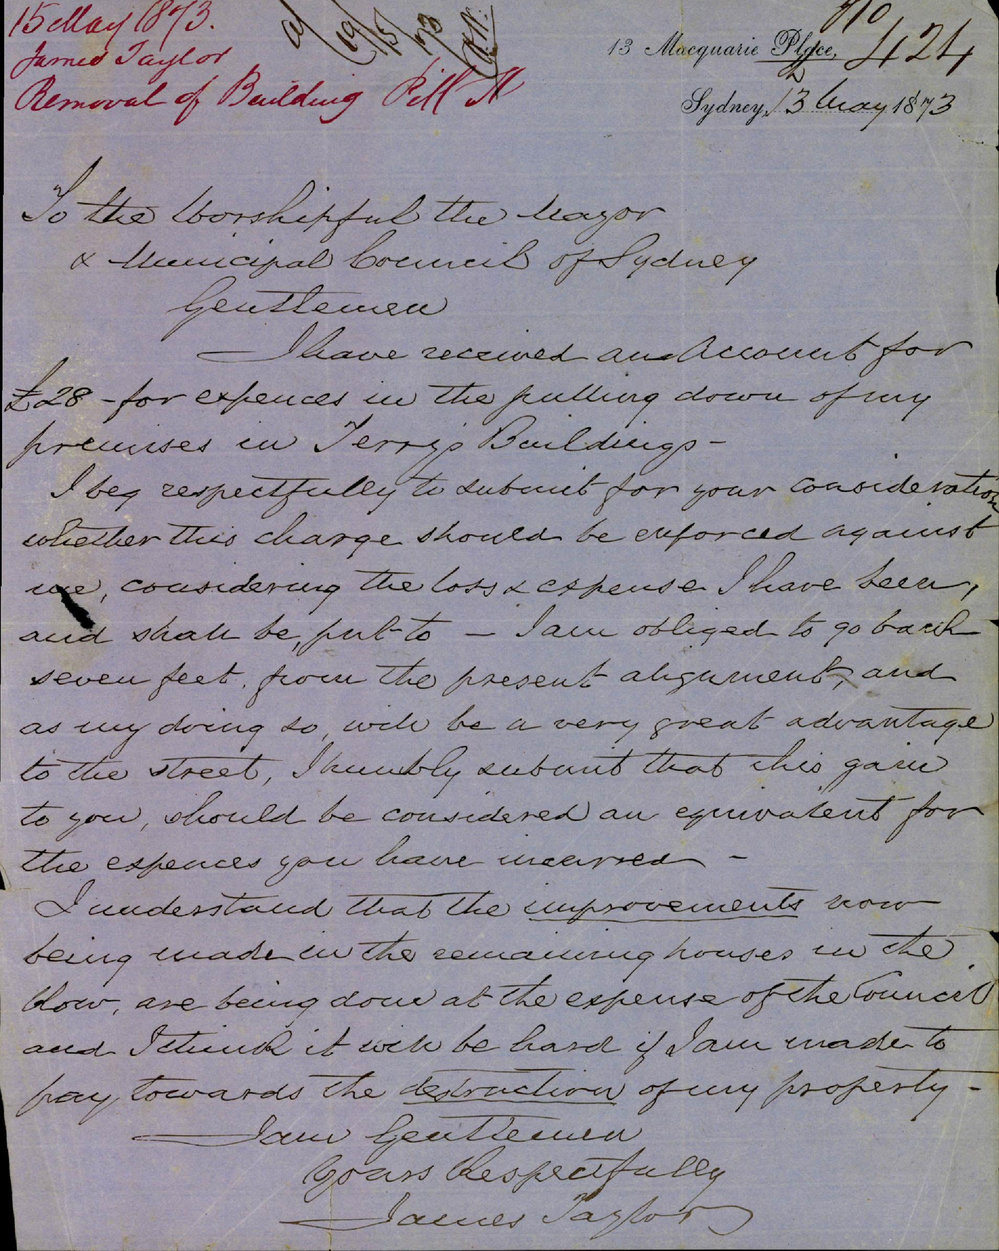 15 May 1873.
James Taylor
Removal of Building Pitt St
19/5/73
No 424
13 Macquarie Place,
Sydney, 13 May 1873
To the Worshipful the Mayor
& Municipal Council of Sydney
Gentlemen
I have received an Account for
£28 - for expences in the pulling down of my
premises in Terry's Buildings -
I beg respectfully to submit for your consideration
whether this charge should be enforced against
me, considering the loss & expense I have been,
and shall be, put to - I am obliged to go back
seven feet, from the present alignment, and
as my doing so, will be a very great advantage
to the street, I humbly submit that this gain
to you, should be considered an equivalent for
the expences you have incurred -
I understand that the improvements now
being made in the remaining houses in the
row, are being done at the expense of the Council
and I think it will be hard if I am made to
pay towards the destruction of my property -
I am Gentlemen
Yours Respectfully
James Taylor